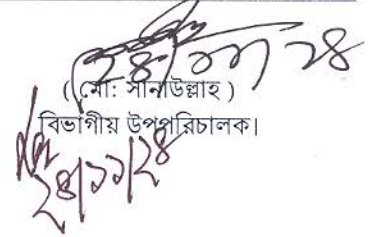 ২৪/১১/২৪
( মো: সানাউল্লাহ )
বিভাগীয় উপপরিচালক।
২৪/১১/২৪